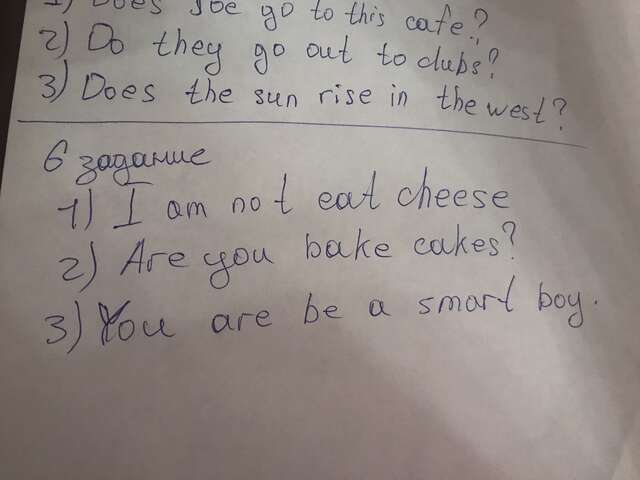 1) Does Joe go to this cafe?
2) Do they go out to clubs?
3) Does the sun rise in the west?
6 задание
1) I am not eat cheese
2) Are you bake cakes?
3) You are be a smart boy.